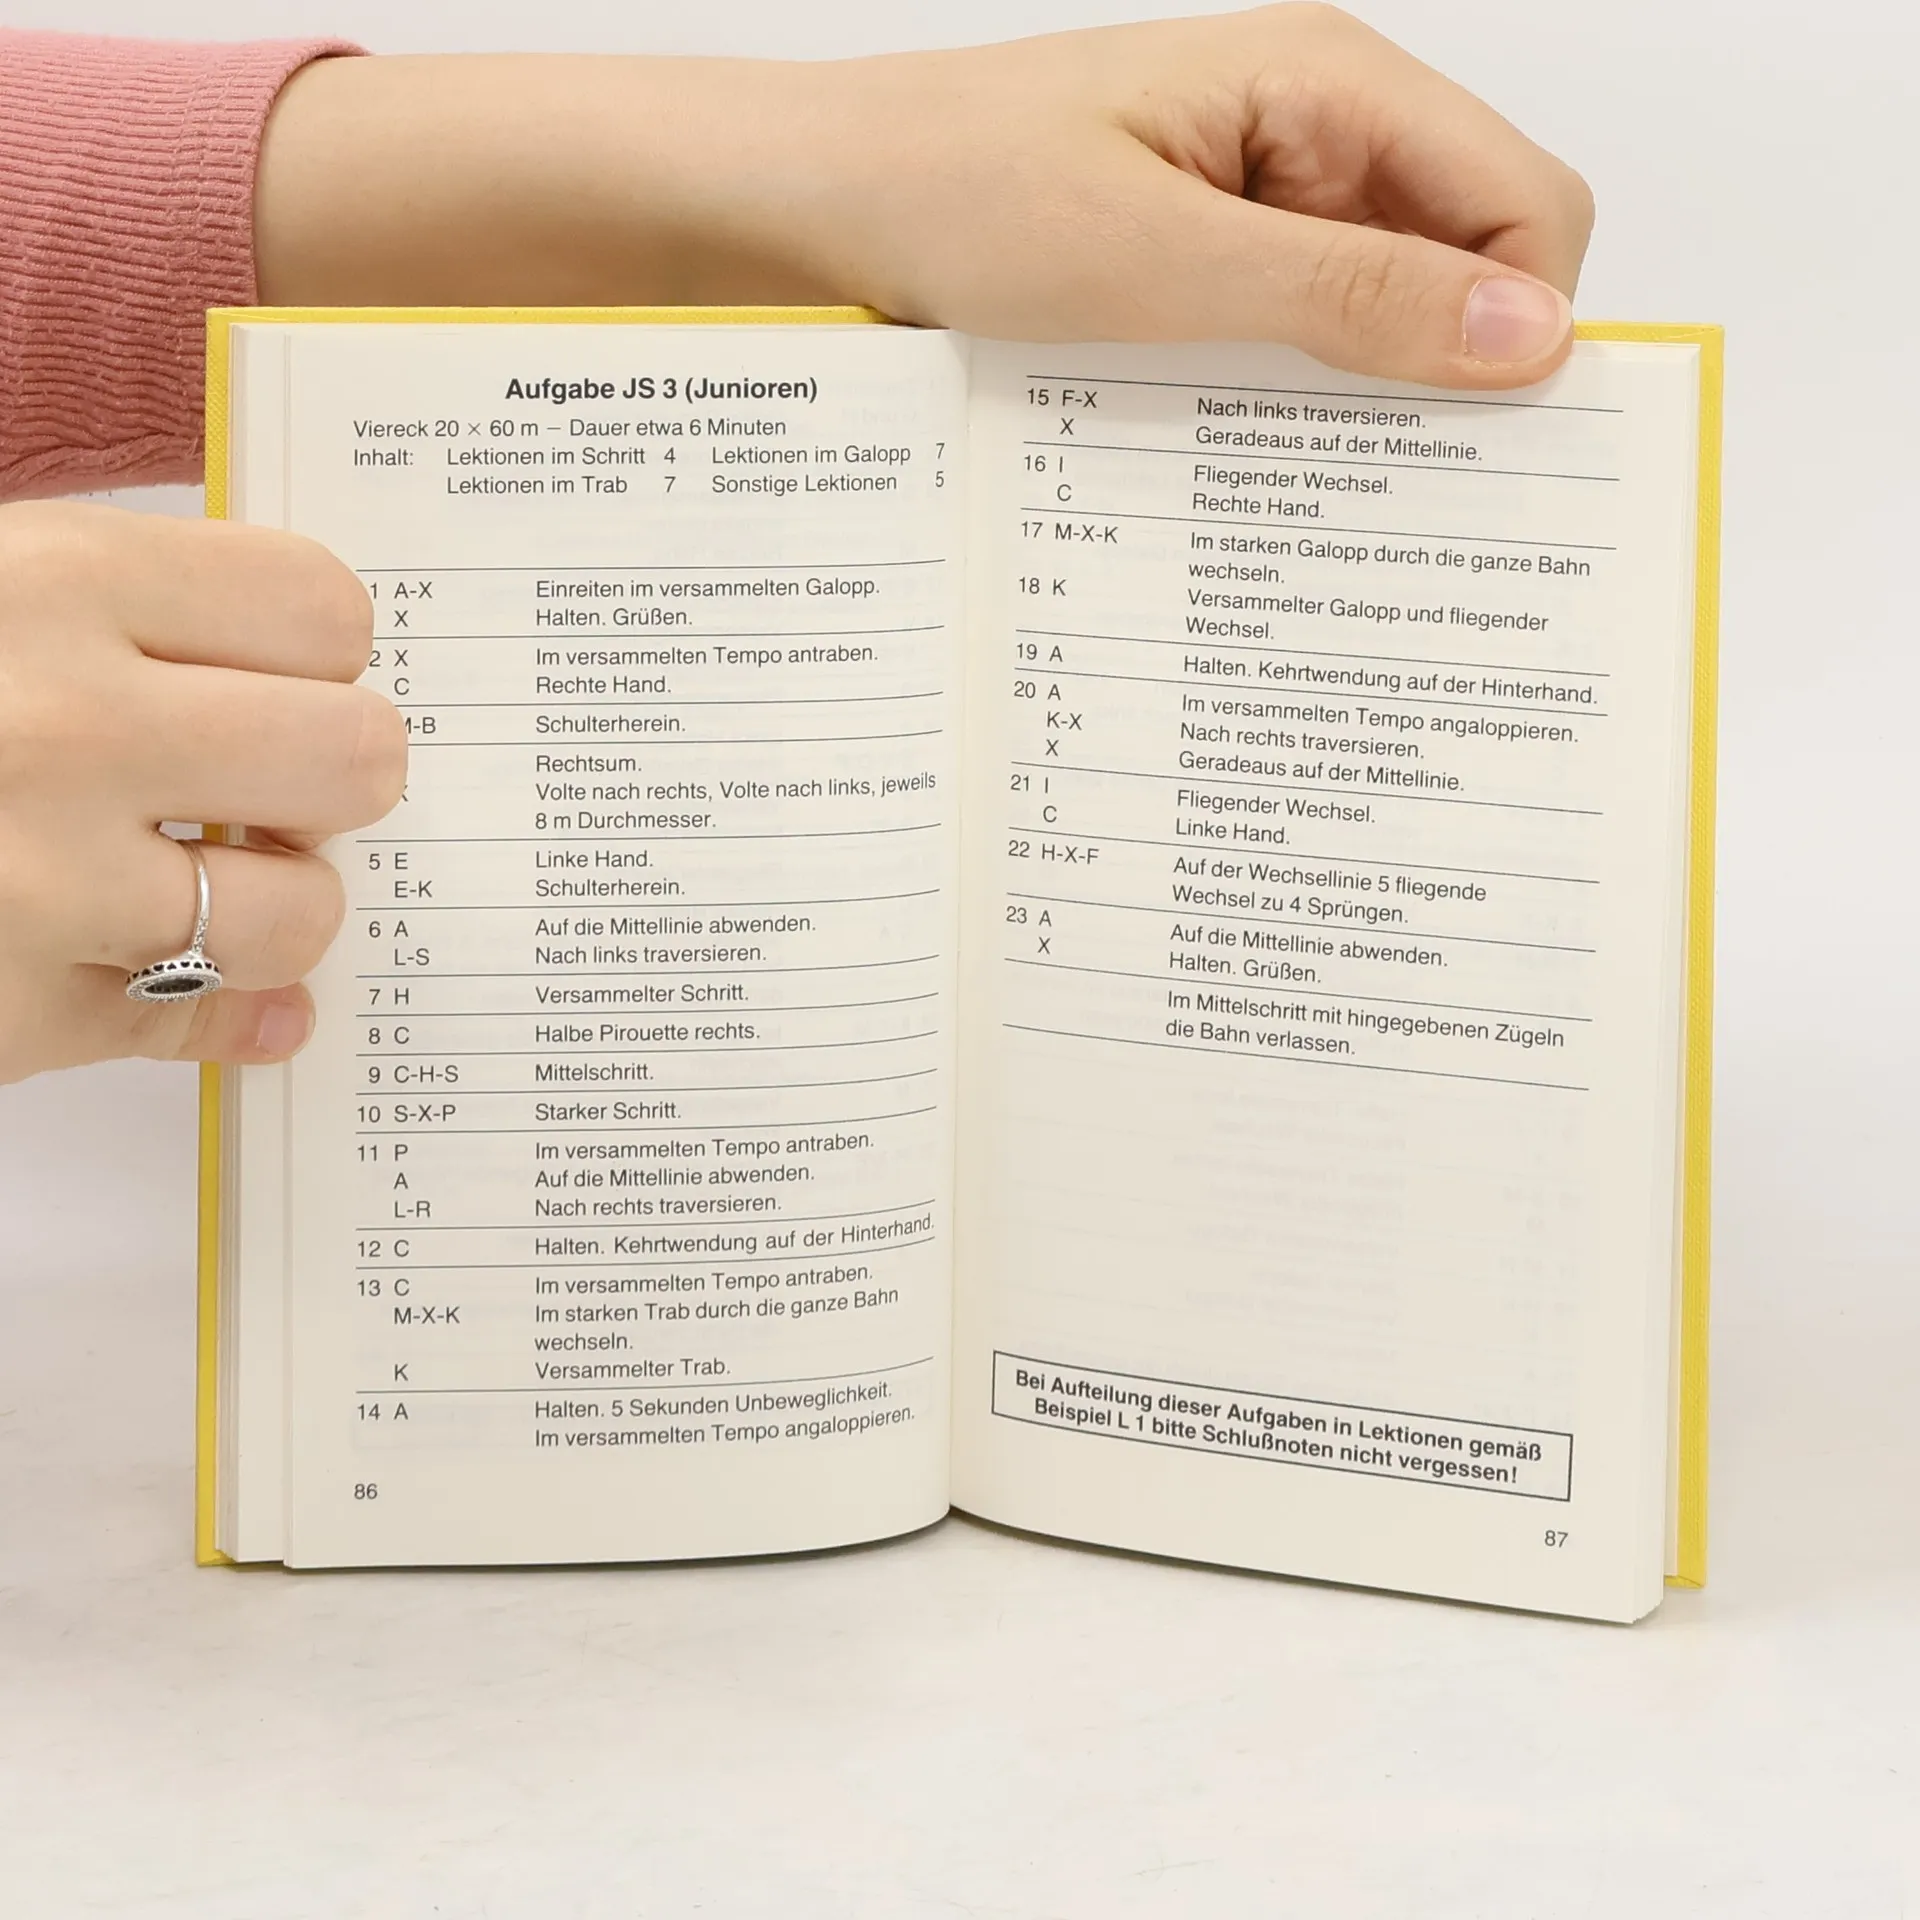 Aufgabe JS 3 (Junioren)
Viereck 20 × 60 m – Dauer etwa 6 Minuten
Inhalt: Lektionen im Schritt 4 Lektionen im Galopp 7
Lektionen im Trab 7 Sonstige Lektionen 5
1 A-X Einreiten im versammelten Galopp.
X Halten. Grüßen.
2 X Im versammelten Tempo antraben.
C Rechte Hand.
-B Schulterherein.
Rechtsum.
Volte nach rechts, Volte nach links, jeweils
8 m Durchmesser.
5 E Linke Hand.
E-K Schulterherein.
6 A Auf die Mittellinie abwenden.
L-S Nach links traversieren.
7 H Versammelter Schritt.
8 C Halbe Pirouette rechts.
9 C-H-S Mittelschritt.
10 S-X-P Starker Schritt.
11 P Im versammelten Tempo antraben.
A Auf die Mittellinie abwenden.
L-R Nach rechts traversieren.
12 C Halten. Kehrtwendung auf der Hinterhand.
13 C Im versammelten Tempo antraben.
M-X-K Im starken Trab durch die ganze Bahn
wechseln.
K Versammelter Trab.
14 A Halten. 5 Sekunden Unbeweglichkeit.
Im versammelten Tempo angaloppieren.
86
15 F-X Nach links traversieren.
X Geradeaus auf der Mittellinie.
16 I Fliegender Wechsel.
C Rechte Hand.
17 M-X-K Im starken Galopp durch die ganze Bahn
wechseln.
18 K Versammelter Galopp und fliegender
Wechsel.
19 A Halten. Kehrtwendung auf der Hinterhand.
20 A Im versammelten Tempo angaloppieren.
K-X Nach rechts traversieren.
X Geradeaus auf der Mittellinie.
21 I Fliegender Wechsel.
C Linke Hand.
22 H-X-F Auf der Wechsellinie 5 fliegende
Wechsel zu 4 Sprüngen.
23 A Auf die Mittellinie abwenden.
X Halten. Grüßen.
Im Mittelschritt mit hingegebenen Zügeln
die Bahn verlassen.
Bei Aufteilung dieser Aufgaben in Lektionen gemäß
Beispiel L 1 bitte Schlußnoten nicht vergessen!
87